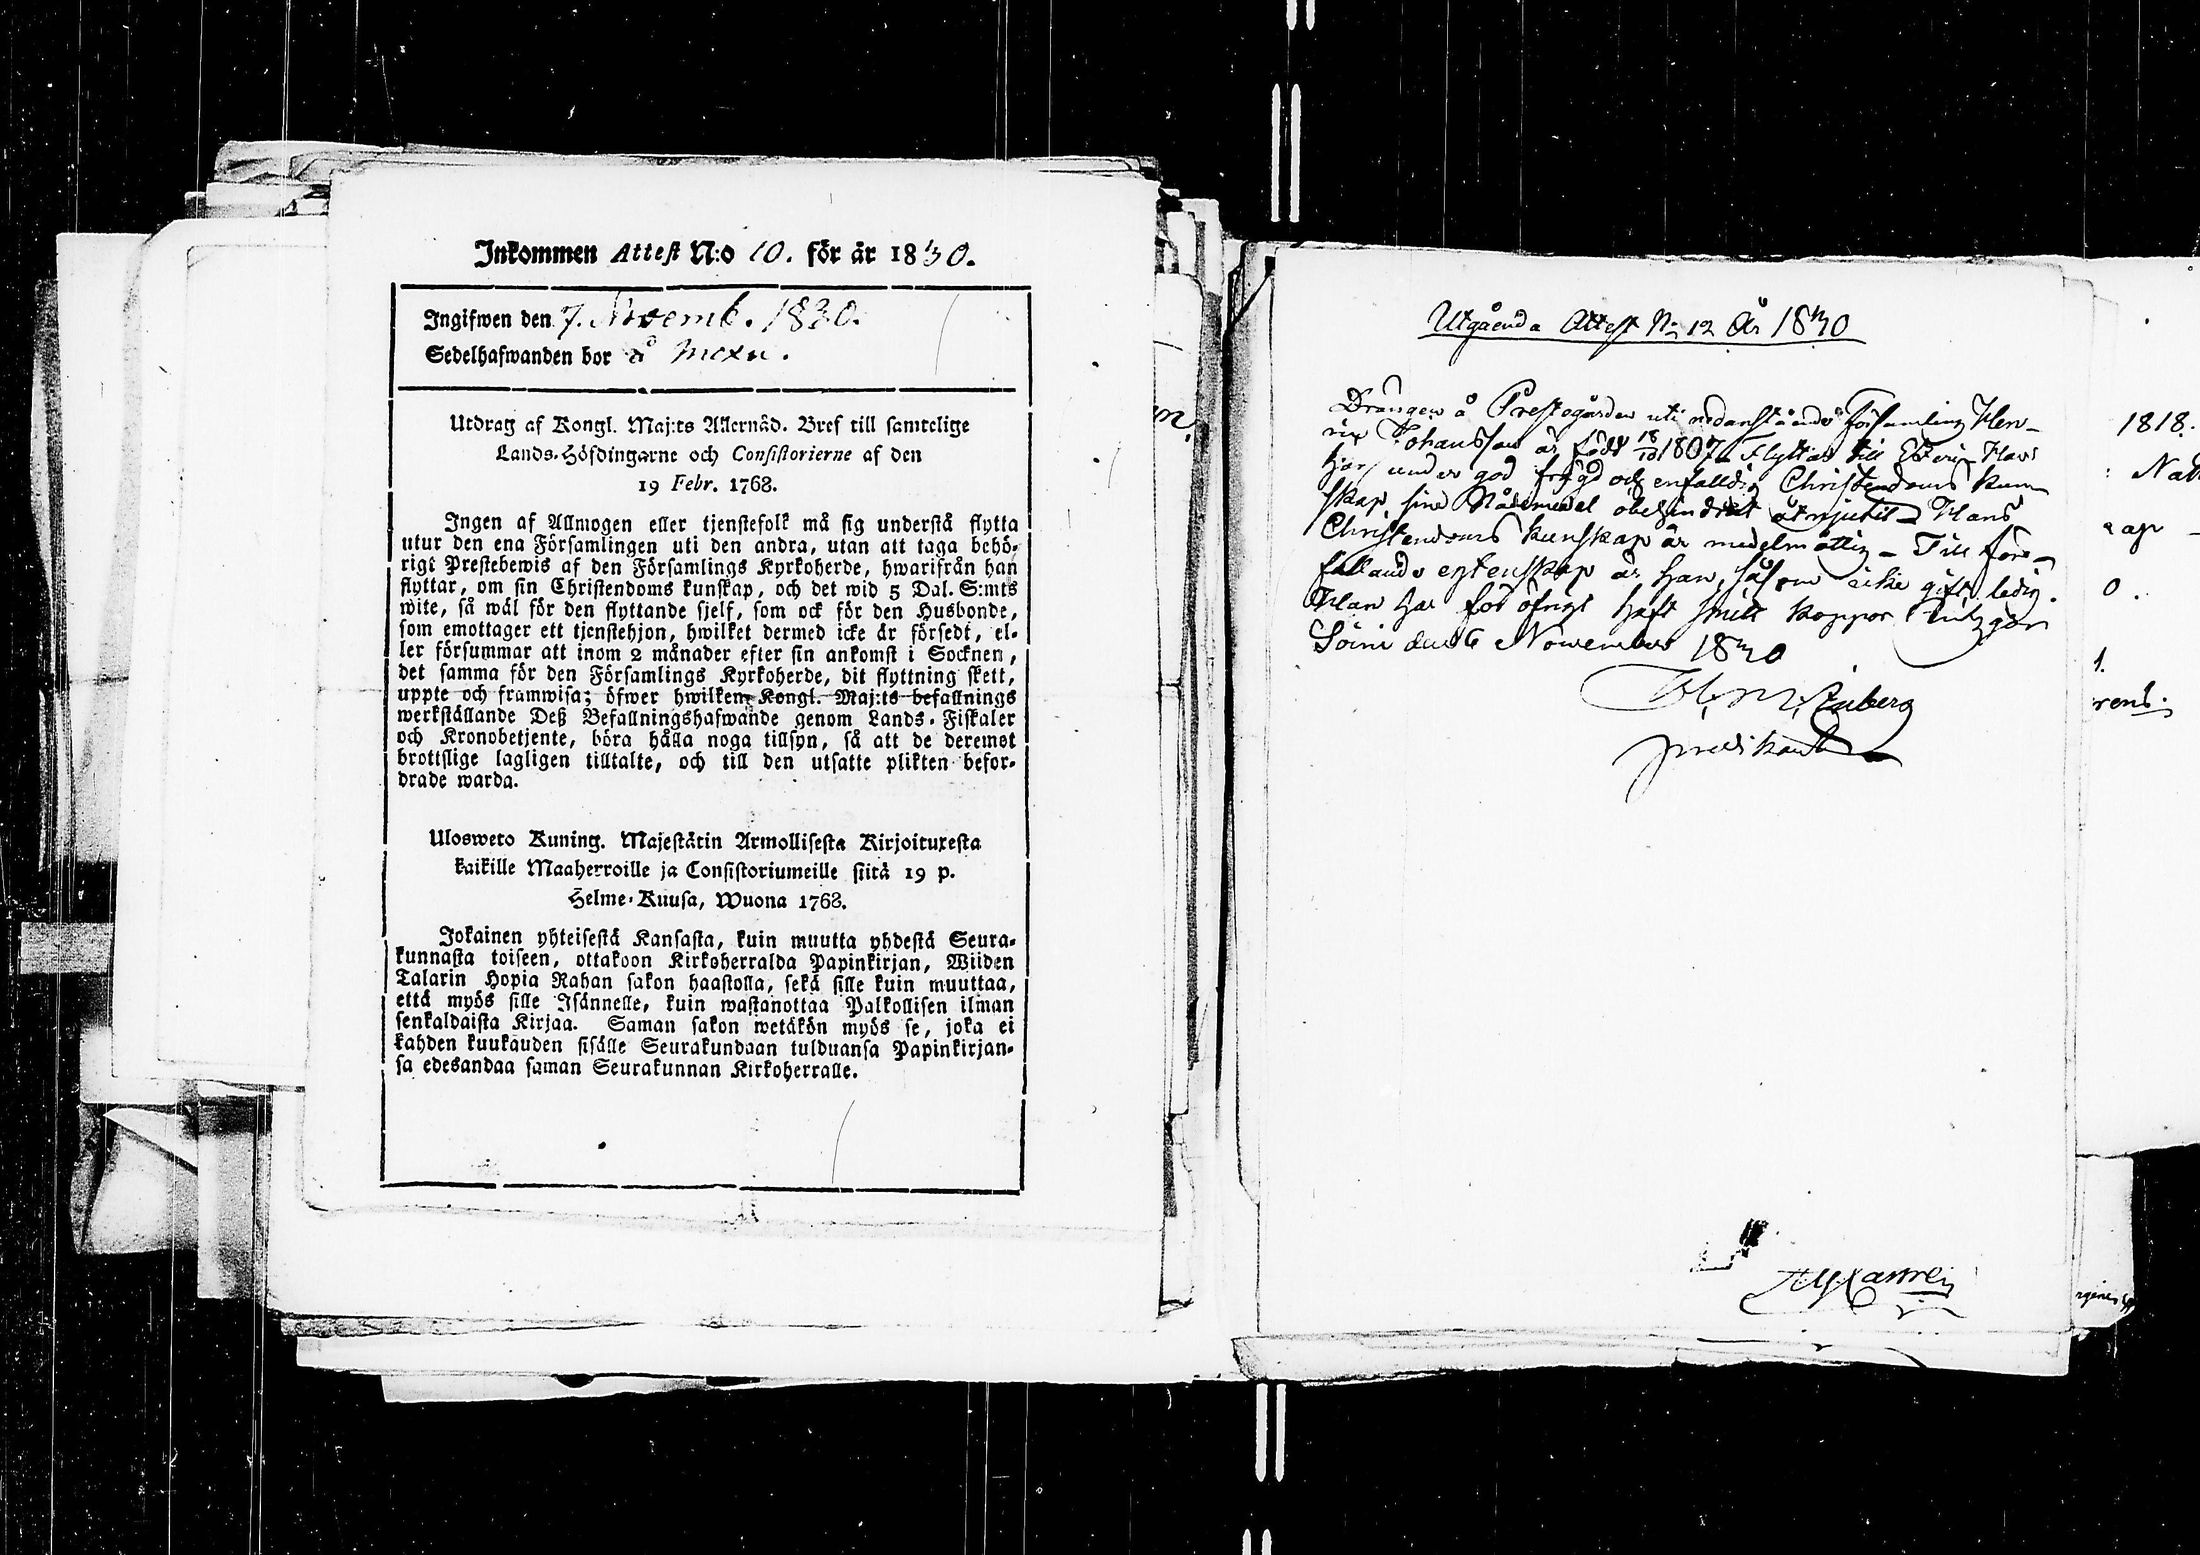 Inkommen Attest N:o 10. för år 1830.
Ingifwen den 7. Novemb. 1830.
Sedelhafwanden bor å
Utdrag af Kongl. Maj:ts Allernåd. Bref till samtelige
Lands-Höfdingarne och Consistorierne af den
19 Febr. 1768.
Ingen af Allmogen eller tjenstefolk må sig understå flytta
utur den ena Församlingen uti den andra, utan att taga behö-
rigt Prestebewis af den Församlings Kyrkoherde, hwarifrån han
flyttar, om sin Christendoms kunskap, och det wid 5 Dal. S:mts
wite, så wäl för den flyttande sjelf, som ock för den Husbonde,
som emottager ett tjenstehjon, hwilket dermed icke är försedt, el-
ler försummar att inom 2 månader efter sin ankomst i Socknen,
det samma för den Församlings Kyrkoherde, dit flyttning skett,
uppte och framwisa; öfwer hwilken Kongl. Maj:ts befallnings
werkställande Deß Befallningshafwande genom Lands-Fiskaler
och Kronobetjente, böra hålla noga tillsyn, så att de deremot
brottslige lagligen tilltalte, och till den utsatte plikten befor-
drade warda.
Ulosweto Kuning. Majestätin Armollisesta Kirjoituxesta
kaikille Maaherroille ja Consistoriumeille siitä 19 p.
Helme-Kuusa, Wuona 1768.
Jokainen yhteisestä Kansasta, kuin muutta yhdestä Seura-
kunnasta toiseen, ottakoon Kirkoherralda Papinkirjan, Wiiden
Talarin Hopia Rahan sakon haastolla, sekä sille kuin muuttaa,
että myös sille Isännelle, kuin wastanottaa Palkollisen ilman
senkaldaista Kirjaa. Saman sakon wetäkön myös se, joka ei
kahden kuukauden sisälle Seurakundaan tulduansa Papinkirjan-
sa edesandaa saman Seurakunnan Kirkoherralle.
Utgående Attest N:o 12 År 1830
Drängen å Prestegården uti nedanstående Församling Hen-
ric Johansson är född 18/10 1807. Flyttar till Han
har under god frägd och enfalldig Christendoms kun
skap sine Nådemedel obehindrat åtnjutit Hans
Christendoms kunskap är medelmåttig - Till före-
fallande egtenskap är han, såsom icke gift, ledig.
Han har för öfrigt haft
Soini den 6 November 1830
predikant
1818.
0.
1.